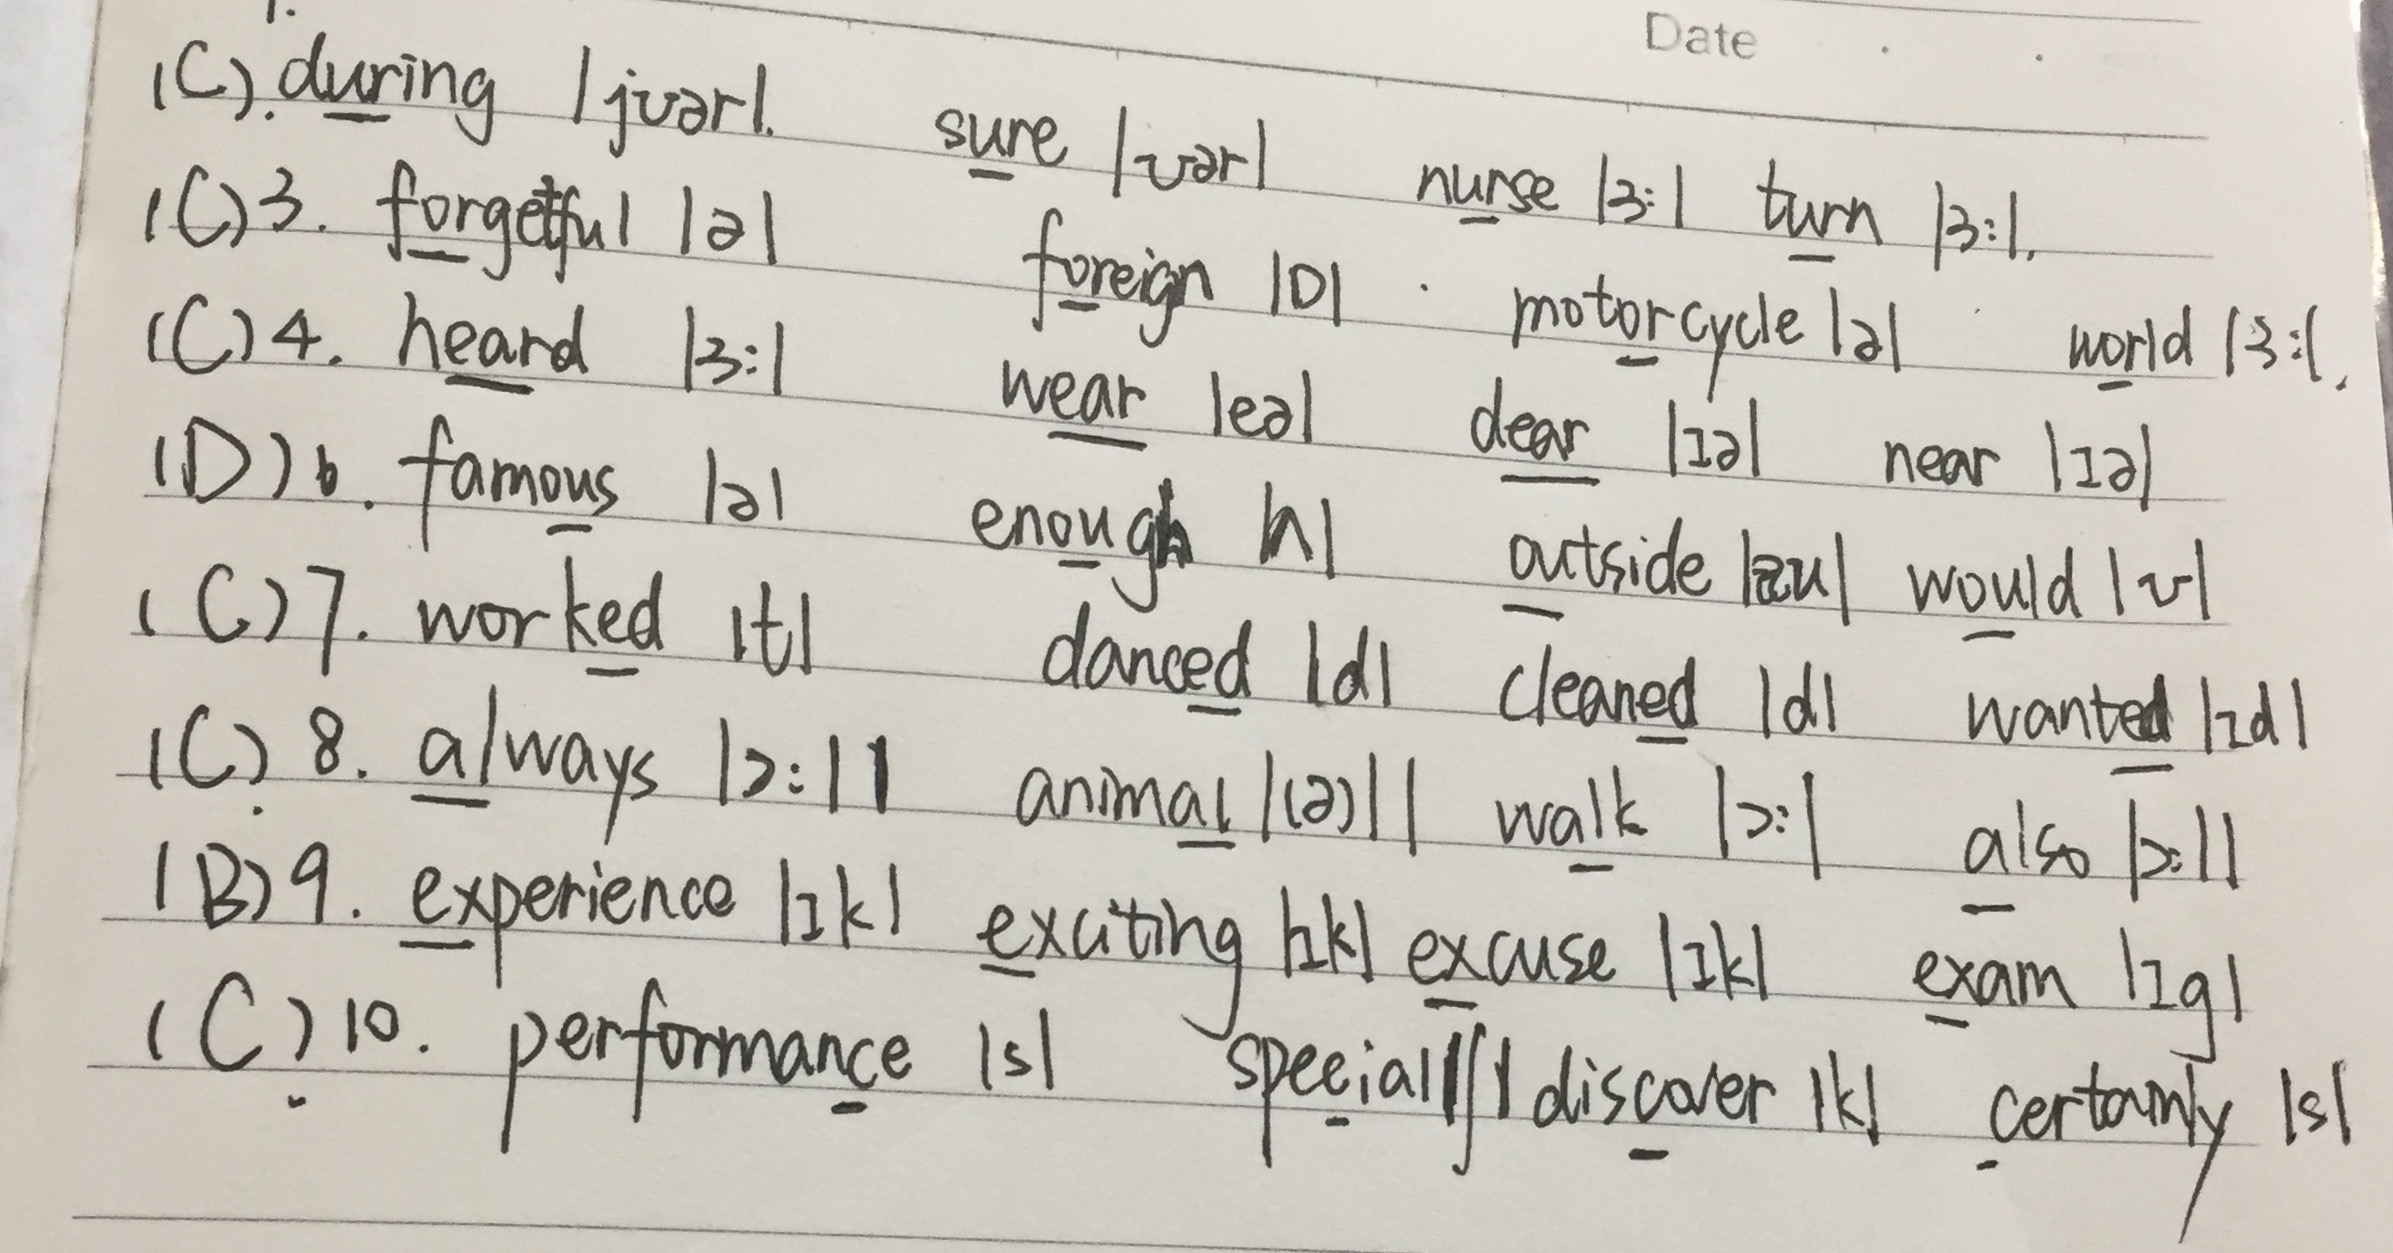 Date
(C). during /jʊər/. sure /ʊər/ nurse /ɜ:/ turn /ɜ:/.
(C) 3. forgetful /ə/ foreign /ɒ/ motorcycle /ə/ world /ɜ:/.
(C) 4. heard /ɜ:/ wear /eə/ dear /ɪə/ near /ɪə/
(D) 6. famous /ə/ enough /ʌ/ outside /aʊ/ would /ʊ/
(C) 7. worked /t/ danced /d/ cleaned /d/ wanted /ɪd/
(C) 8. always /ɔ:l/ animal /(ə)l/ walk /ɔ:/ also /ɔ:l/
(B) 9. experience /ɪk/ exciting /ɪk/ excuse /ɪk/ exam /ɪg/
(C) 10. performance /s/ special /ʃ/ discover /k/ certainly /s/